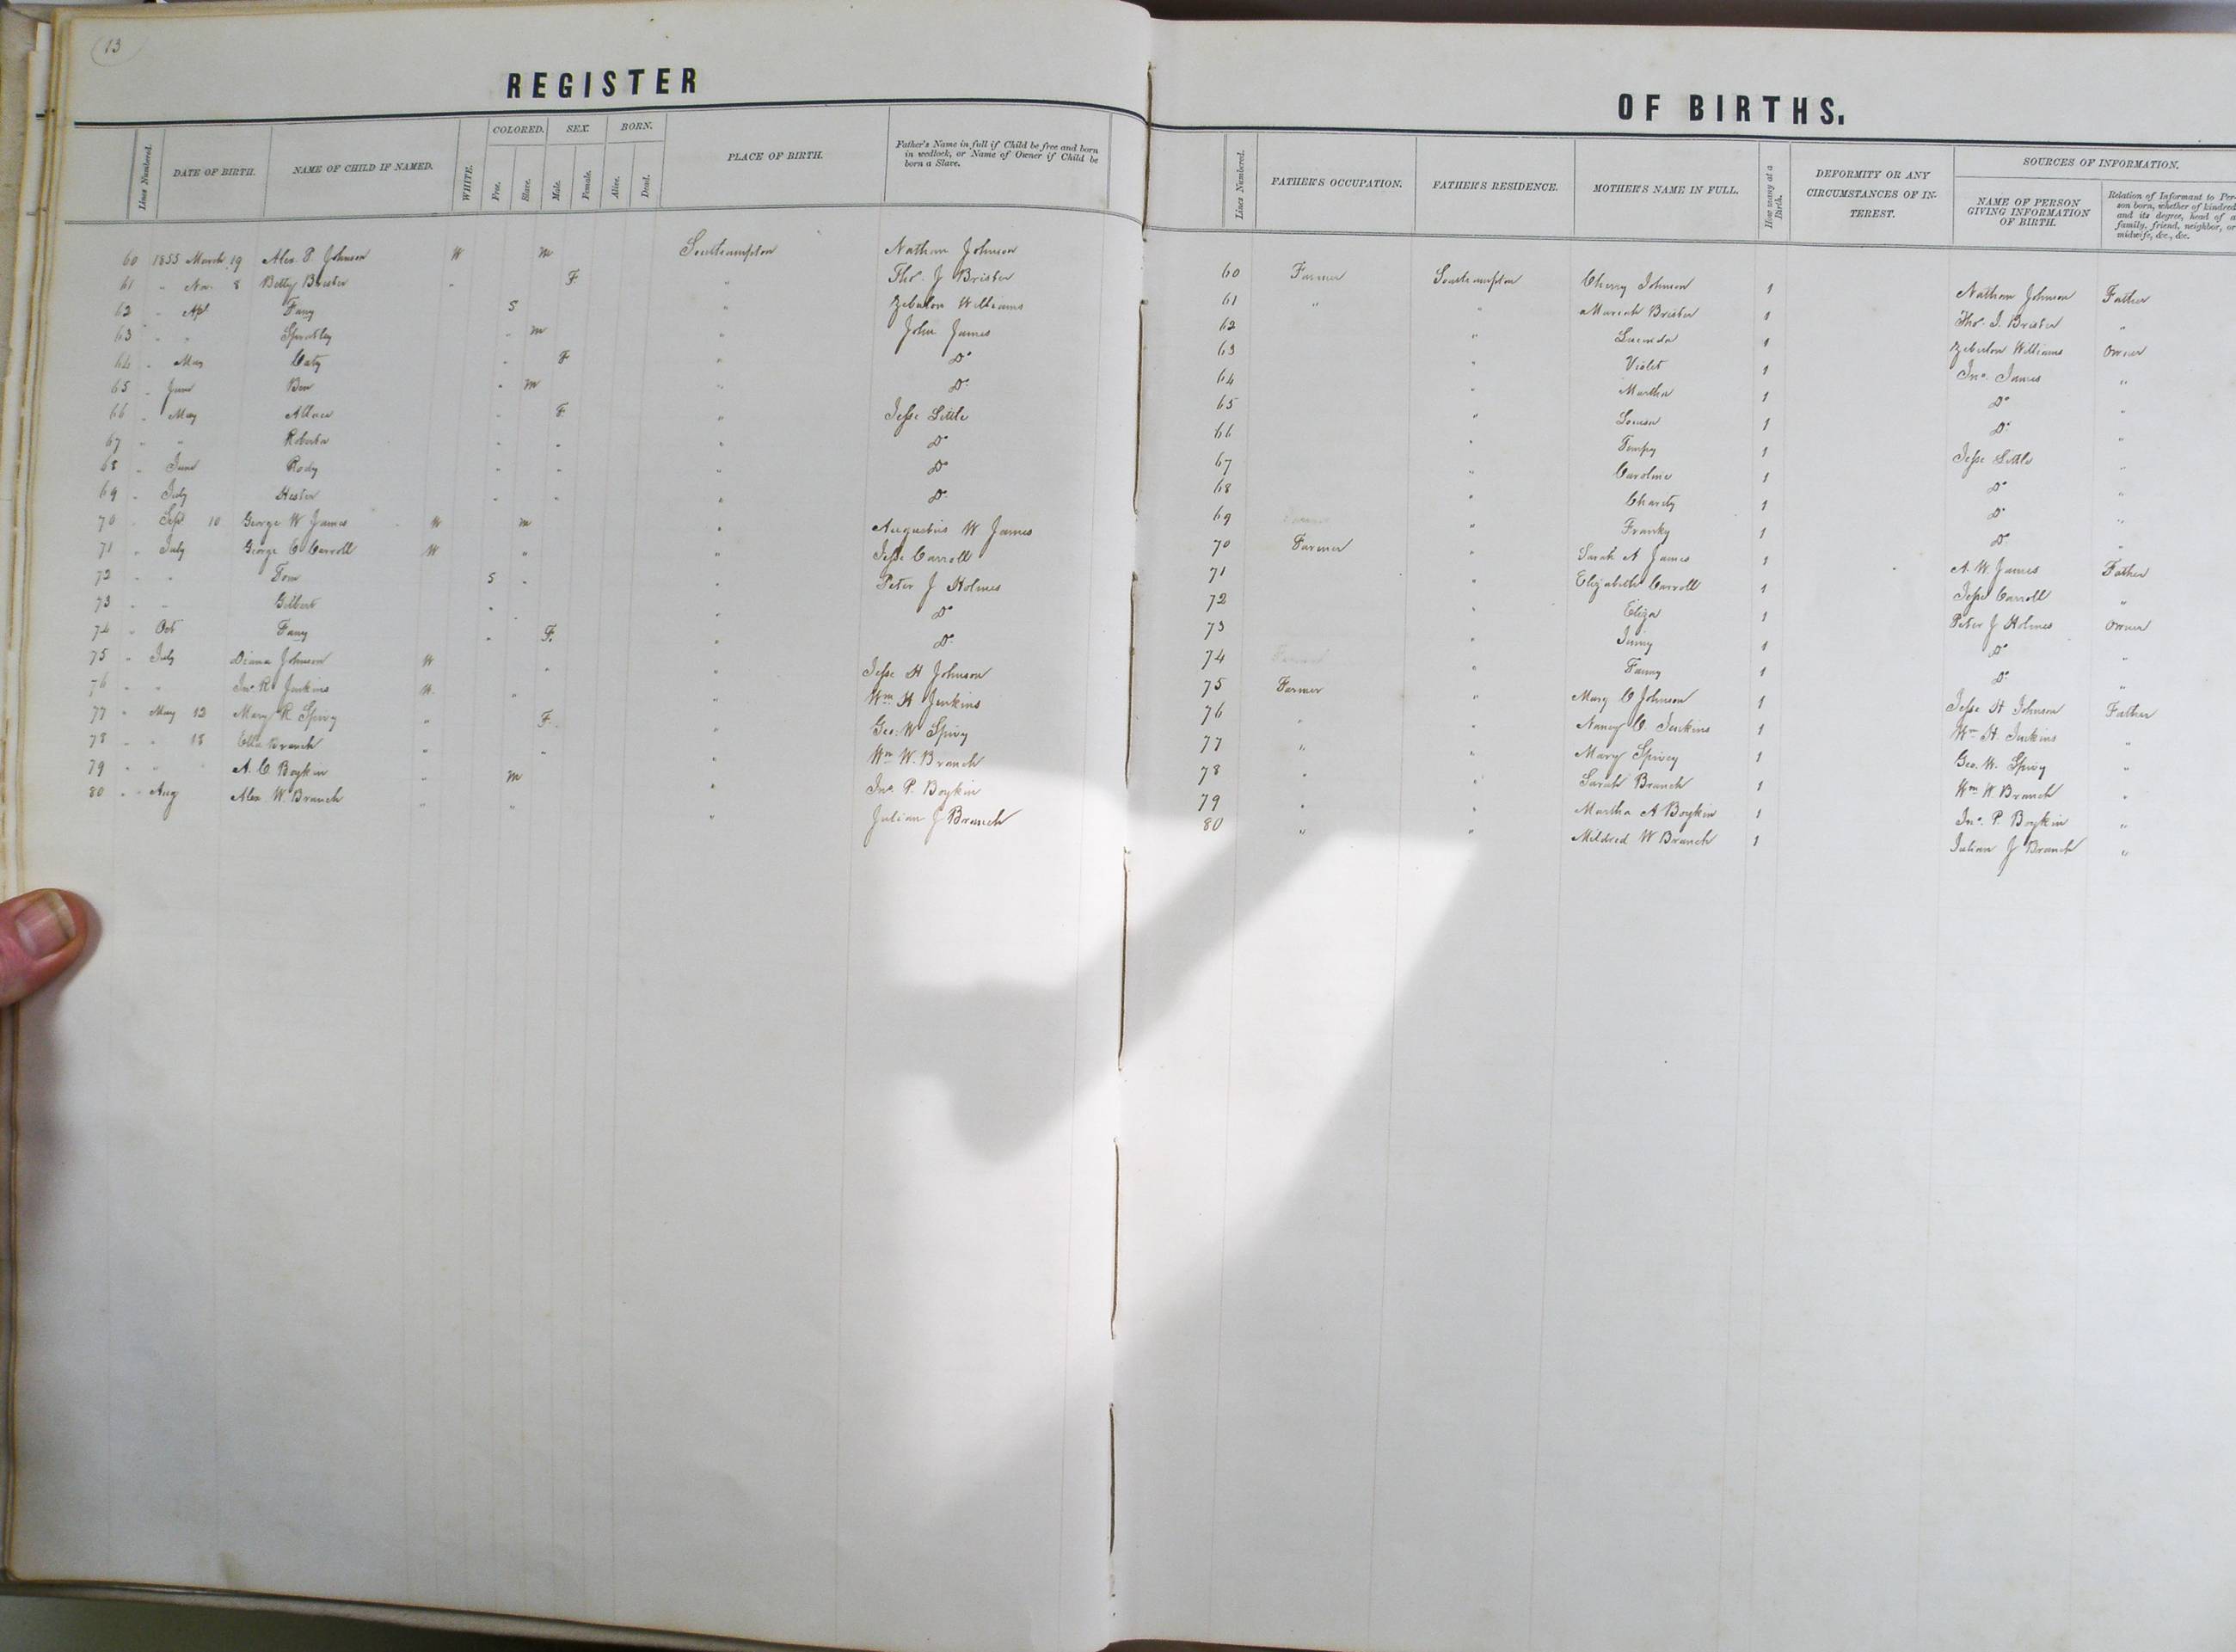 13
REGISTER
OF BIRTHS.
Lines Numbered. DATE OF BIRTH. NAME OF CHILD IF NAMED. WHITE. COLORED. Free. Slave. SEX. Male. Female. BORN. Alive. Dead. PLACE OF BIRTH. Father's Name in full if Child be free and born in wedlock, or Name of Owner if Child be born a Slave.
60 1855 March 19 Alex. P. Johnson W m Southampton Nathan Johnson
61 " Nov. 8 Betty Brister " F " Thos. J Brister
62 " Apl S " Zebulon Williams
63 " " " m " John James
64 " May Caty " F " Do
65 " June Ben " m " Do
66 " May " F " Jesse Little
67 " " Roberta " " " Do
68 " June Rody " " " Do
69 " July Hester " " " Do
70 " Sept 10 George W James W m " Augustus W James
71 " July George C Carroll W " " Jesse Carroll
72 " " Tom S " " Peter J Holmes
73 " " Gilbert " " " Do
74 " Oct Fanny " F. " Do
75 " July Diana Johnson W " " Jesse H Johnson
76 " " Jno. R. Jenkins W " " Wm H Jenkins
77 " May 12 Mary R. Spivy " F " Geo. W Spivy
78 " " 18 Ella Branch " " " Wm W. Branch
79 " " A. C. Boykin " m " Jno. P. Boykin
80 " Aug Alex. W. Branch " " " Julian J Branch
Lines Numbered. FATHER'S OCCUPATION. FATHER'S RESIDENCE. MOTHER'S NAME IN FULL. How many at a Birth. DEFORMITY OR ANY CIRCUMSTANCES OF INTEREST. SOURCES OF INFORMATION. NAME OF PERSON GIVING INFORMATION OF BIRTH. Relation of Informant to Person born, whether of kindred and its degree, head of a family, friend, neighbor, or midwife, &c., &c.
60 Farmer Southampton Cherry Johnson 1 Nathan Johnson Father
61 " " Mariah Brister 1 Thos. J. Brister "
62 " Lucinda 1 Zebulon Williams Owner
63 " Violet 1 Jno. James "
64 " Martha 1 Do "
65 " Louisa 1 Do "
66 " Tempy 1 Jesse Little "
67 " Caroline 1 Do "
68 " Charity 1 Do "
69 " Franky 1 Do "
70 Farmer " Sarah A James 1 A. W. James Father
71 " Elizabeth Carroll 1 Jesse Carroll "
72 " Eliza 1 Peter J Holmes Owner
73 " Jinny 1 Do "
74 " Fanny 1 Do "
75 Farmer " Mary C Johnson 1 Jesse H Johnson Father
76 " " Nancy C. Jenkins 1 Wm H. Jenkins "
77 " " Mary Spivey 1 Geo. W. Spivy "
78 " " Sarah Branch 1 Wm W Branch "
79 " " Martha A Boykin 1 Jno. P. Boykin "
80 " " Mildred W Branch 1 Julian J Branch "